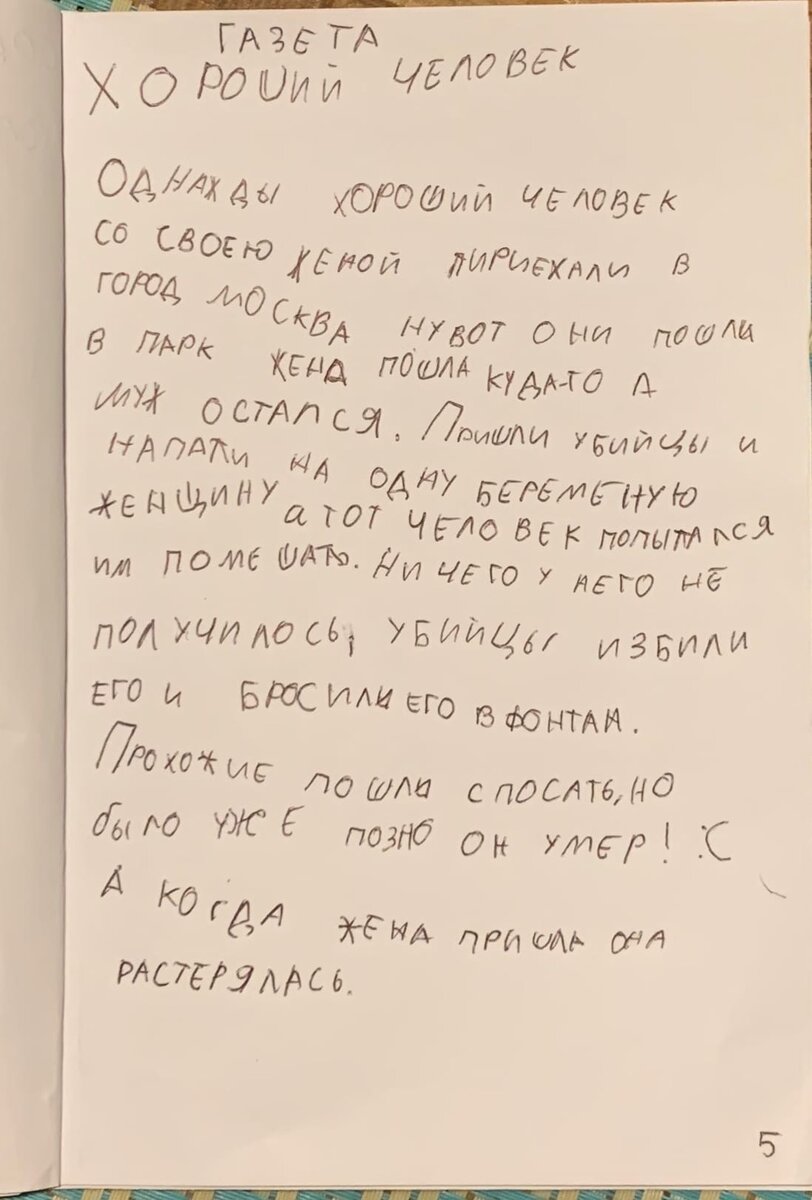 ГАЗЕТА
ХОРОШИЙ ЧЕЛОВЕК
ОДНАЖДЫ ХОРОШИЙ ЧЕЛОВЕК
СО СВОЕЮ ЖЕНОЙ ПИРИЕХАЛИ В
ГОРОД МОСКВА НУВОТ ОНИ ПОШЛИ
В ПАРК ЖЕНА ПОШЛА КУДА-ТО А
МУЖ ОСТАЛСЯ. ПРИШЛИ УБИЙЦЫ И
НАПАЛИ НА ОДНУ БЕРЕМЕНУЮ
ЖЕНЩИНУ А ТОТ ЧЕЛОВЕК ПОПЫТАЛСЯ
ИМ ПОМЕШАТЬ. НИЧЕГО У НЕГО НЕ
ПОЛУЧИЛОСЬ, УБИЙЦЫ ИЗБИЛИ
ЕГО И БРОСИЛИ ЕГО В ФОНТАН.
ПРОХОЖИЕ ПОШЛИ СПОСАТЬ, НО
БЫЛО УЖЕ ПОЗНО ОН УМЕР! :С
А КОГДА ЖЕНА ПРИШЛА ОНА
РАСТЕРЯЛАСЬ.
5